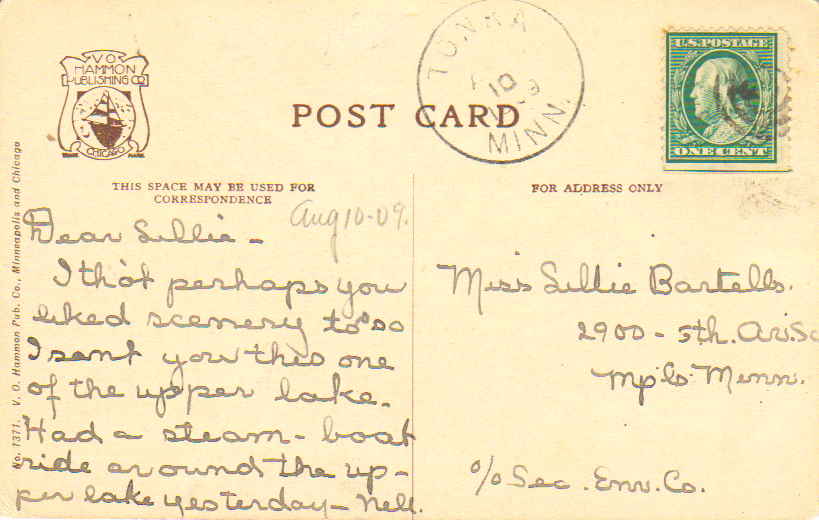 V.O.
HAMMON
PUBLISHING CO
TRADE CHICAGO MARK
POST CARD
TONKA
10
MINN.
U.S. POSTAGE
ONE CENT
THIS SPACE MAY BE USED FOR
CORRESPONDENCE
FOR ADDRESS ONLY
No. 1371. V. O. Hammon Pub. Co., Minneapolis and Chicago
Aug 10-09.
Dear Lillie -
I tho't perhaps you
liked scenery too so
I sent you this one
of the upper lake.
Had a steam-boat
ride around the up-
per lake yesterday - Nell.
Miss Lillie Bartells.
2900 - 5th. Av. So
Mpls Minn.
c/o Sec. Env. Co.